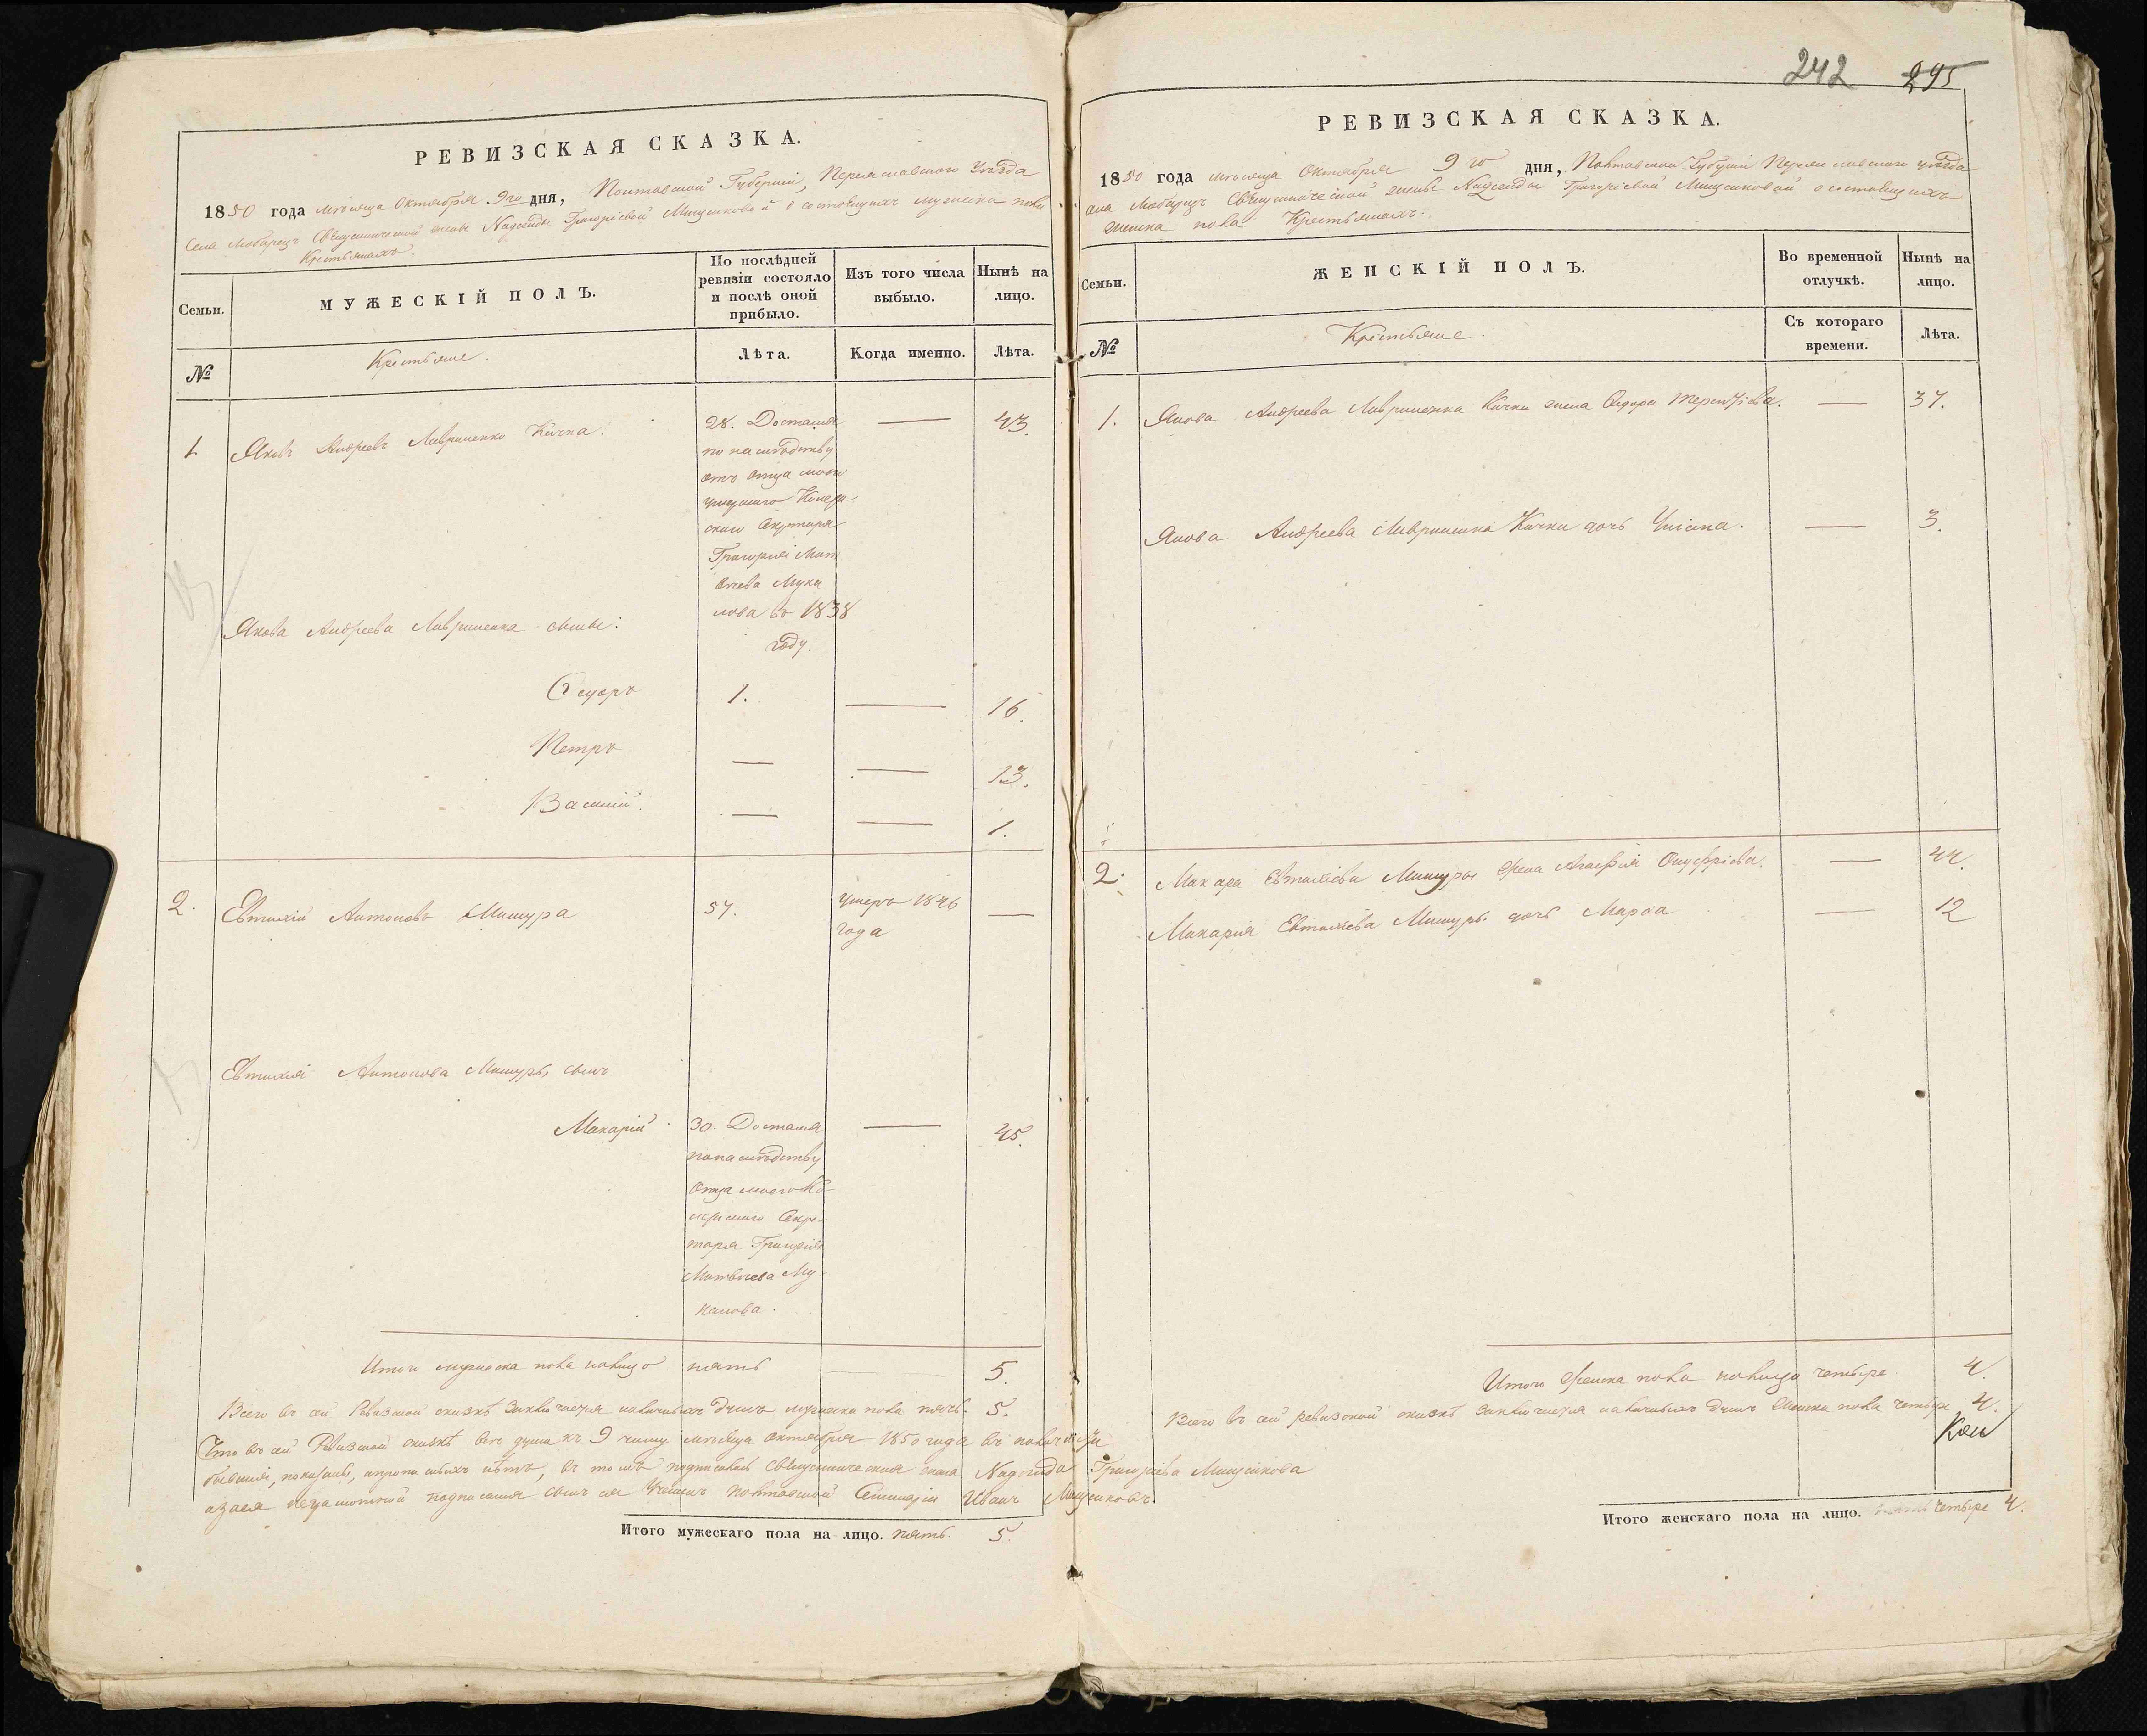 242 295
РЕВИЗСКАЯ СКАЗКА.
1850 года мѣсяца Октября 9го дня, Полтавской Губерніи, Переяславского Уѣзда
Села Священнической жены Надежды Григоріевой о состоящихъ мужеска пола
Крестьянахъ.
Семьи.
МУЖЕСКІЙ ПОЛЪ.
По послѣдней ревизіи состояло и послѣ оной прибыло.
Изъ того числа выбыло.
Нынѣ на лицо.
№
Крестьяне.
Лѣта.
Когда именно.
Лѣта.
1 Яковъ Андреевъ Лавриненко Кичка. 28. Достался — 43.
по наслѣдству
отъ отца моего
умершаго Колеж
скаго Секретаря
Григорія Мат
вѣева Мука
лова въ 1838
году.
Якова Андреева Лавриненка сыны:
Ѳедоръ 1. — 16.
Петръ — — 13.
Василій. — — 1.
2. Евтихій Антоновъ Мишура 57. умеръ 1846 —
года
Евтихія Антонова Мишуры сынъ
Макарій 30. Достался — 45.
по наслѣдству
отца моего Ко-
лежскаго Секре-
таря Григорія
Матвѣева Му-
калова.
Итого мужеска пола налицо пять — 5.
Всего въ сей Ревизской сказкѣ заключается наличныхъ душъ мужеска пола пять. 5.
Что въ сей Ревизской сказкѣ всѣ душа къ 9 числу мѣсяца октября 1850 года въ
показаны, нѣтъ, въ томъ подписалась Священническая жена Надежда Григоріева
а за нея неграмотной подписался сынъ ея Полтавской Семинаріи Иванъ
Итого мужескаго пола на лицо. пять. 5.
РЕВИЗСКАЯ СКАЗКА.
1850 года мѣсяца Октября 9го дня, Полтавской Губерніи Переяславского уѣзда
Священнической жены Надежды Григоріевой о состоящихъ
женска пола Крестьянахъ.
Семьи.
ЖЕНСКІЙ ПОЛЪ.
Во временной отлучкѣ.
Нынѣ на лицо.
№
Крестьяне.
Съ котораго времени.
Лѣта.
1. Якова Андреева Лавриненка Кички жена — 37.
Якова Андреева Лавриненка Кички дочь — 3.
2. Макара Евтихіева Мишуры жена Агафія Онуфріева. — 44.
Макарія Евтихіева Мишуры дочь Марѳа — 12
Итого женска пола налицо четыре 4.
Всего въ сей ревизской сказкѣ заключается наличныхъ душъ женска пола четыре 4.
Итого женскаго пола на лицо. четыре 4.